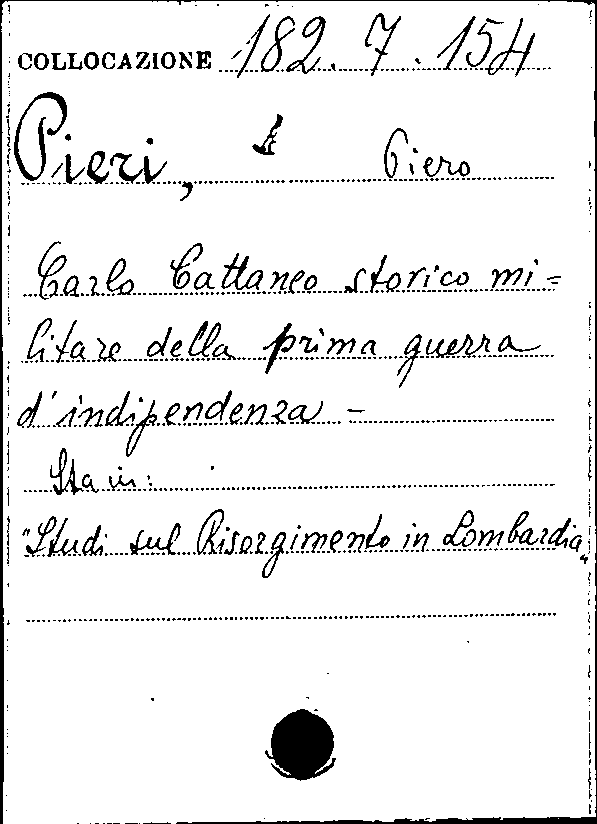 COLLOCAZIONE 182. 7. 154
Pieri, Piero
Carlo Cattaneo storico mi=
litare della prima guerra
d'indipendenza -
Sta in:
"Studi sul Risorgimento in Lombardia„